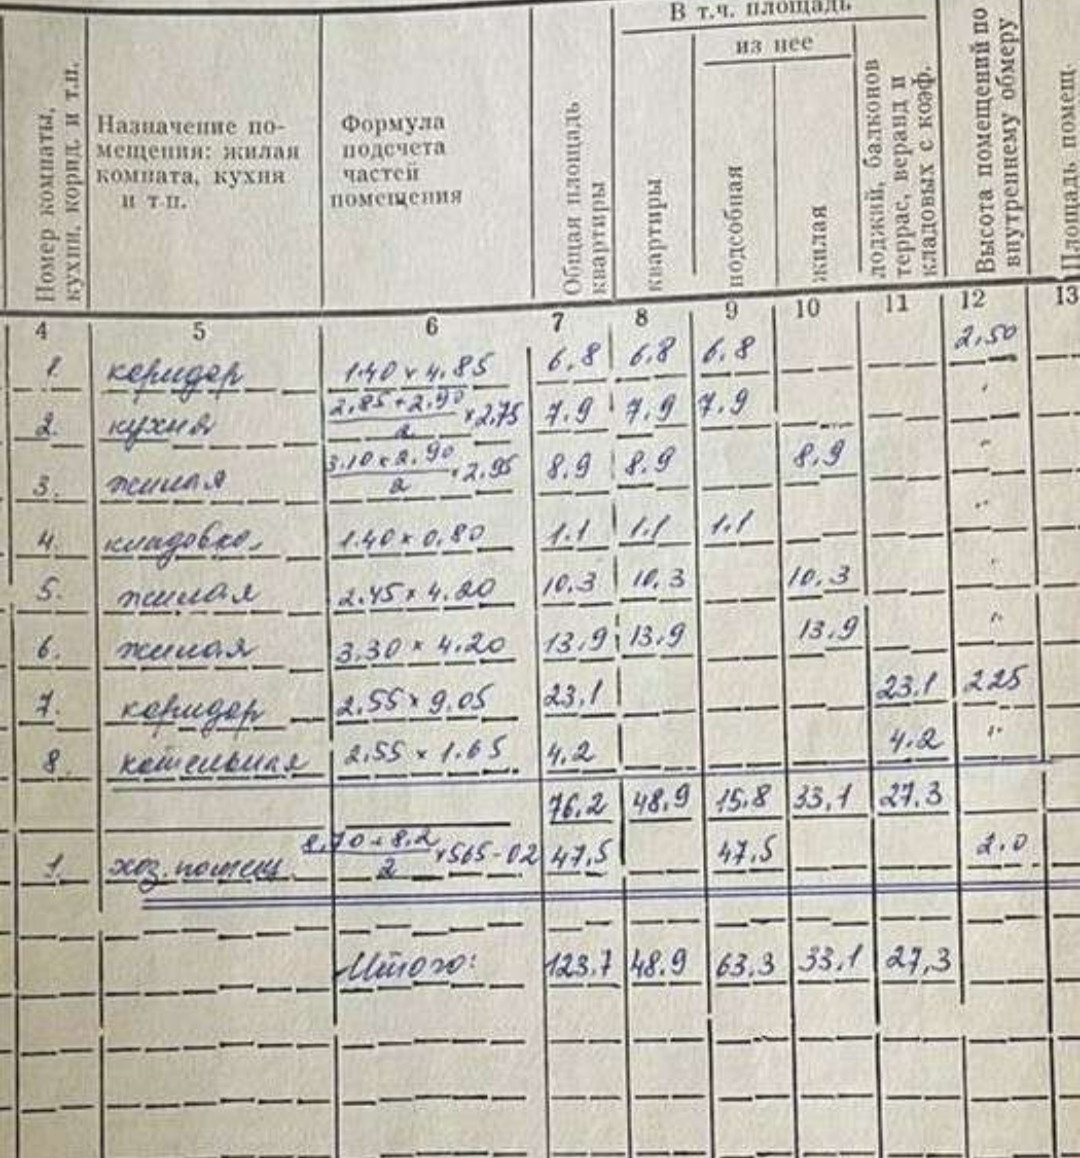 В т.ч. площадь
из нее
Номер комнаты, кухни, корид. и т.п.
Назначение по-
мещения: жилая
комната, кухня
и т.п.
Формула
подсчета
частей
помещения
Общая площадь квартиры
квартиры
подсобная
жилая
лоджий, балконов террас, веранд и кладовых с коэф.
Высота помещений по внутреннему обмеру
Площадь помещ.
4 5 6 7 8 9 10 11 12 13
1. коридор 1.40 × 4.85 6.8 6.8 6.8 2.50
2. кухня 2.85 + 2.90 / 2 × 2.75 7.9 7.9 7.9 "
3. жилая 3.10 × 2.90 / 2 × 2.95 8.9 8.9 8.9 "
4. кладовка 1.40 × 0.80 1.1 1.1 1.1 "
5. жилая 2.45 × 4.20 10.3 10.3 10.3 "
6. жилая 3.30 × 4.20 13.9 13.9 13.9 "
7. коридор 2.55 × 9.05 23.1 23.1 225
8. котельная 2.55 × 1.65 4.2 4.2 "
76.2 48.9 15.8 33.1 27.3
1. хоз. помещ. 8.70 + 8.2 / 2 × 565 - 02 47.5 47.5 2.0
Итого: 123.7 48.9 63.3 33.1 27.3